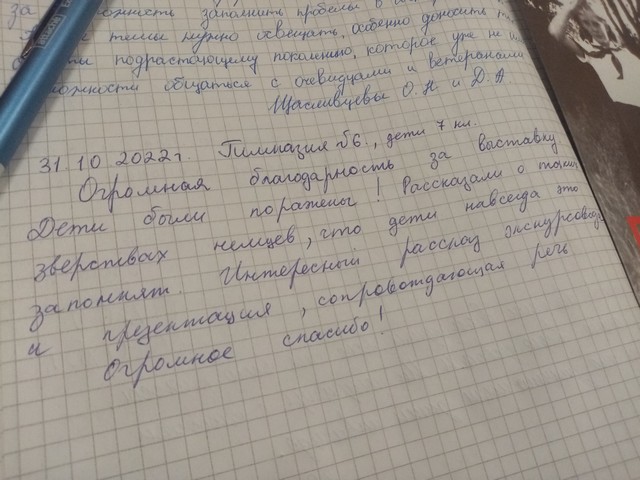 за возможность заполнить пробелы в
темы нужно освещать, особенно доносить
подрастающему поколению, которое уже не
общаться с очевидцами и ветеранами
Щасливцевы О.Н. и Д.А
31.10.2022г. Гимназия №6, дети 7 кл.
Огромная благодарность за выставку
Дети были поражены! Рассказали о таких
зверствах немцев, что дети навсегда это
запомнят. Интересный рассказ экскурсовода
и презентация, сопровождающая речь
Огромное спасибо!